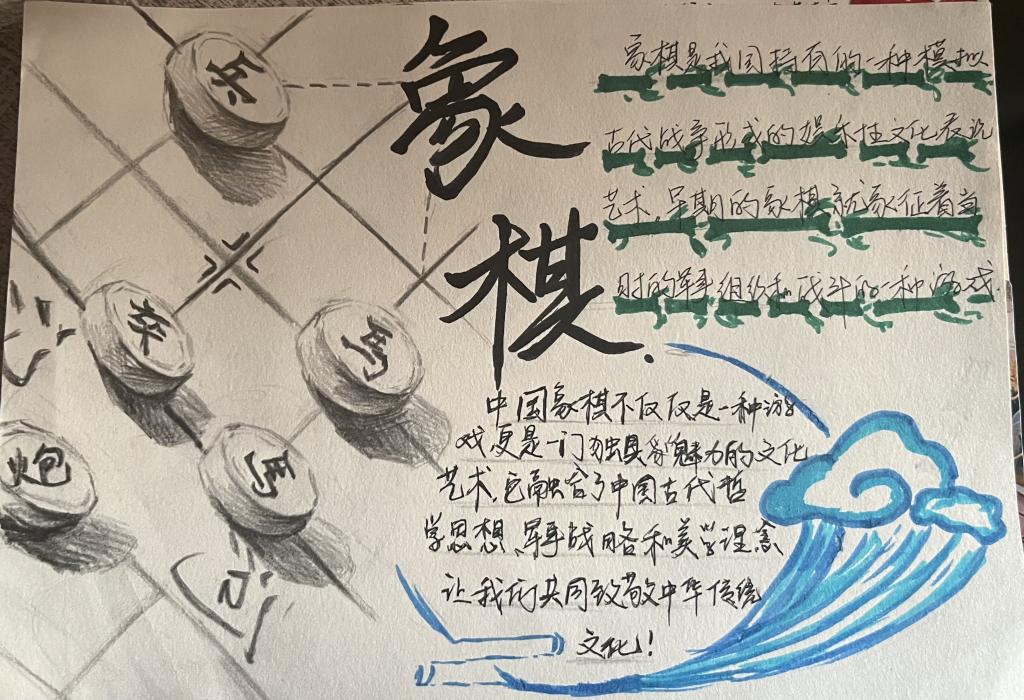 象
棋
象棋是我国特有的一种模拟
古代战争形式的娱乐性文化表现
艺术,早期的象棋就象征着当
时的军事组织和战斗的一种游戏.
中国象棋不仅仅是一种游
戏更是一门独具象魅力的文化
艺术,它融合了中国古代哲
学思想、军事战略和美学理念
让我们共同致敬中华传统
文化!
兵
卒
马
炮
马